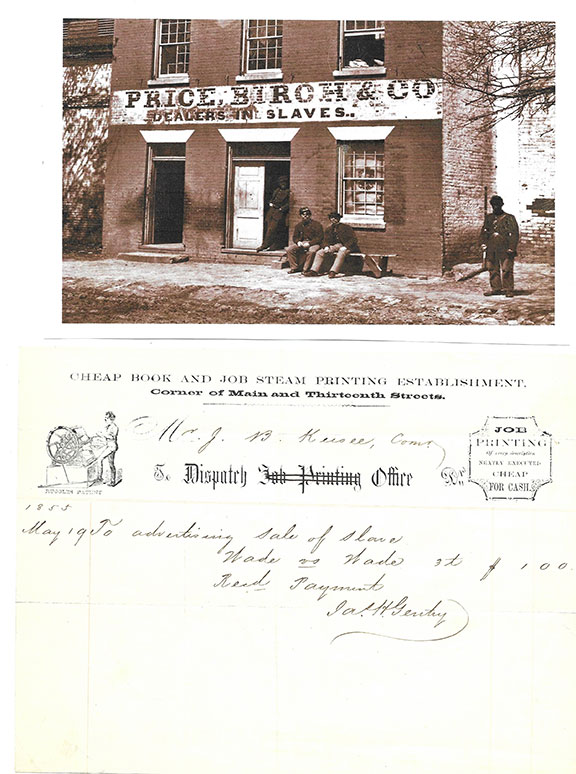 PRICE, BIRCH & CO
DEALERS IN SLAVES.
CHEAP BOOK AND JOB STEAM PRINTING ESTABLISHMENT.
Corner of Main and Thirteenth Streets.
Mr. J. B. Keesee, Comr
To Dispatch Job Printing Office Dr.
JOB
PRINTING
Of every description
NEATLY EXECUTED
CHEAP
FOR CASH.
RUGGLES PATENT
1855
May 19 To advertising sale of slave
Wade vs Wade 3t $ 1 00
Recd Payment
Jas. H Gentry